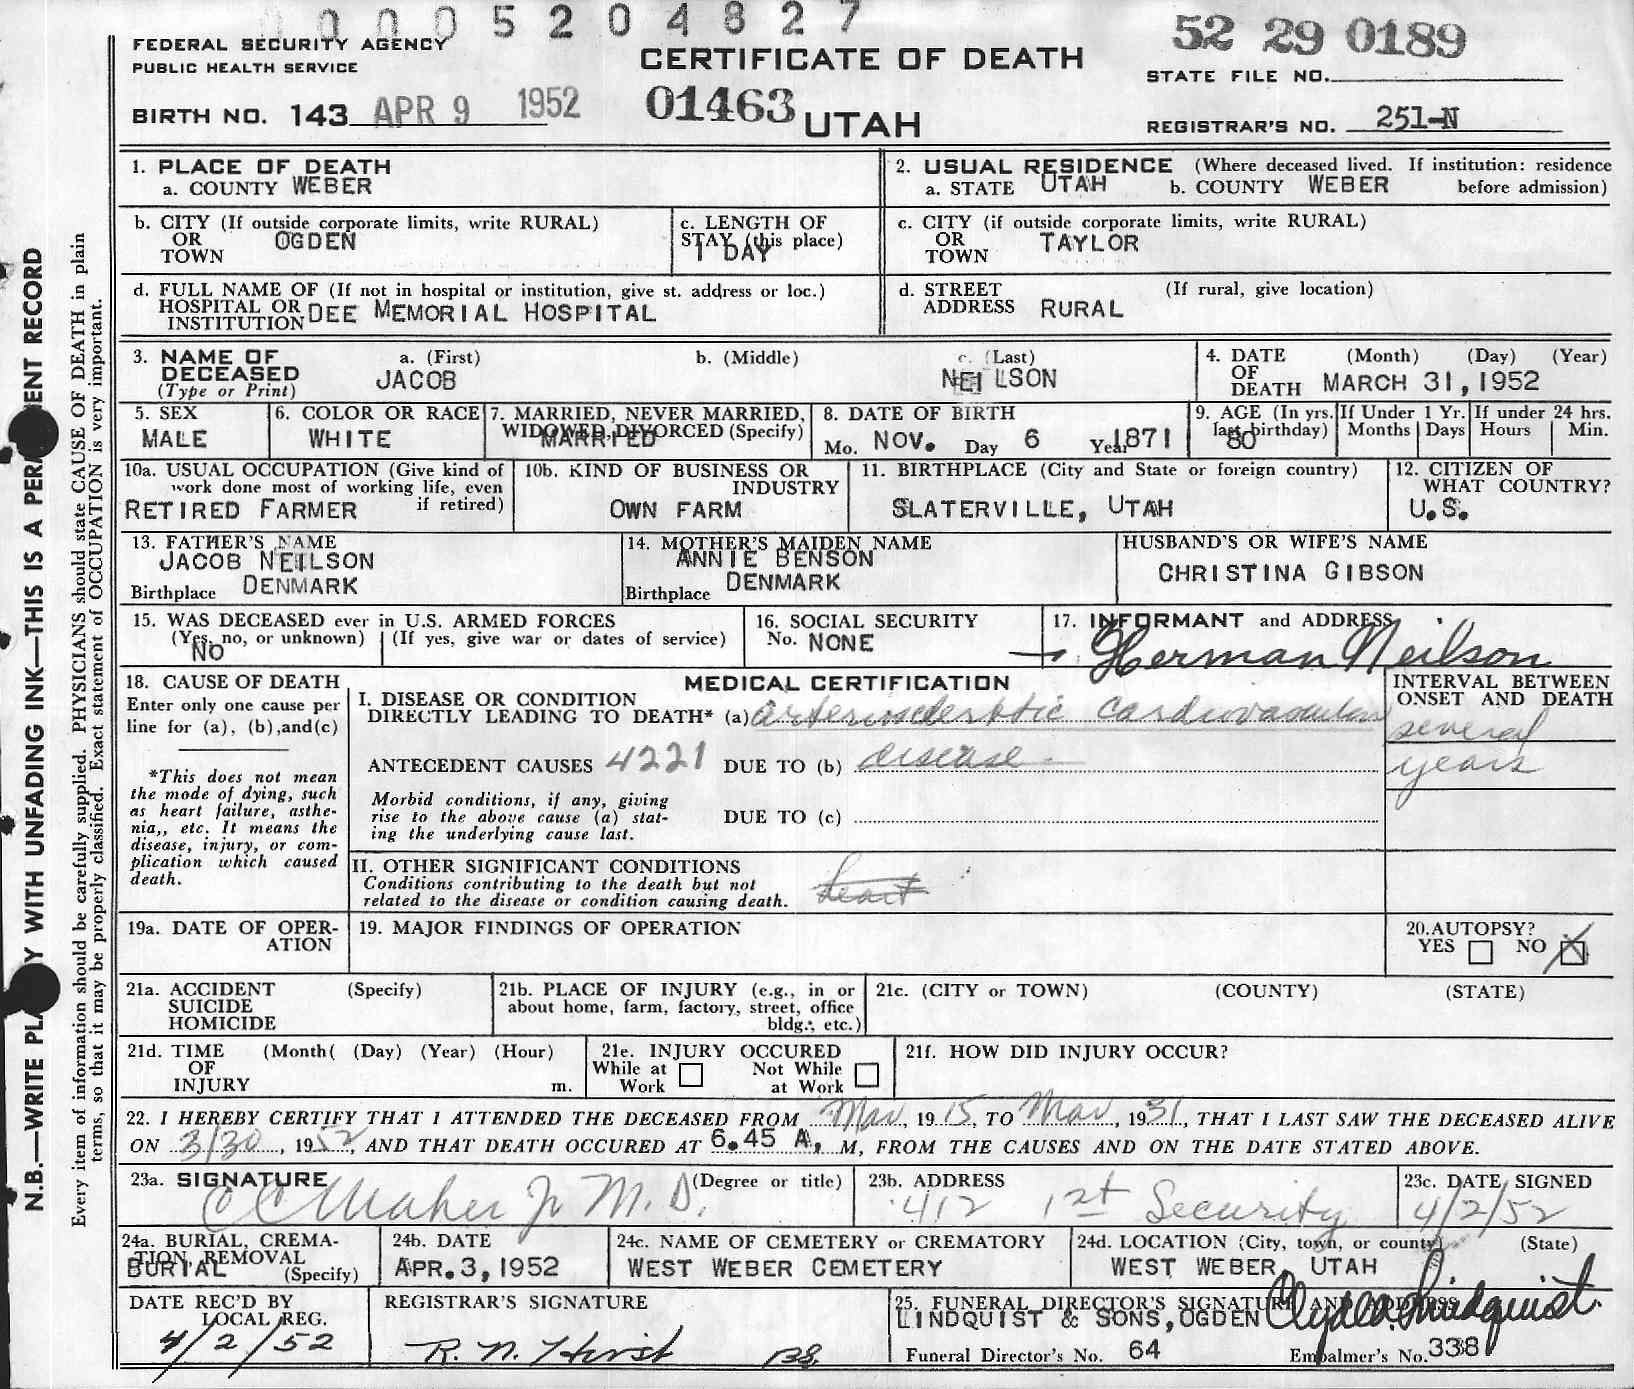 0 0 0 5 2 0 4 8 2 7
FEDERAL SECURITY AGENCY
PUBLIC HEALTH SERVICE
CERTIFICATE OF DEATH
52 29 0189
STATE FILE NO.
BIRTH NO. 143 APR 9 1952
01463
UTAH
REGISTRAR'S NO. 251-N
1. PLACE OF DEATH
a. COUNTY WEBER
2. USUAL RESIDENCE (Where deceased lived. If institution: residence
a. STATE UTAH b. COUNTY WEBER before admission)
b. CITY (If outside corporate limits, write RURAL)
OR
TOWN OGDEN
c. LENGTH OF
STAY (this place)
1 DAY
c. CITY (if outside corporate limits, write RURAL)
OR
TOWN TAYLOR
d. FULL NAME OF (If not in hospital or institution, give st. address or loc.)
HOSPITAL OR
INSTITUTION DEE MEMORIAL HOSPITAL
d. STREET (If rural, give location)
ADDRESS RURAL
3. NAME OF
DECEASED
(Type or Print)
a. (First) b. (Middle) c. (Last)
JACOB NEILSON
4. DATE (Month) (Day) (Year)
OF
DEATH MARCH 31, 1952
5. SEX
MALE
6. COLOR OR RACE
WHITE
7. MARRIED, NEVER MARRIED,
WIDOWED, DIVORCED (Specify)
MARRIED
8. DATE OF BIRTH
Mo. NOV. Day 6 Year 1871
9. AGE (In yrs.
last birthday)
80
If Under 1 Yr.
Months Days
If under 24 hrs.
Hours Min.
10a. USUAL OCCUPATION (Give kind of
work done most of working life, even
if retired)
RETIRED FARMER
10b. KIND OF BUSINESS OR
INDUSTRY
OWN FARM
11. BIRTHPLACE (City and State or foreign country)
SLATERVILLE, UTAH
12. CITIZEN OF
WHAT COUNTRY?
U.S.
13. FATHER'S NAME
JACOB NEILSON
Birthplace DENMARK
14. MOTHER'S MAIDEN NAME
ANNIE BENSON
Birthplace DENMARK
HUSBAND'S OR WIFE'S NAME
CHRISTINA GIBSON
15. WAS DECEASED ever in U.S. ARMED FORCES
(Yes, no, or unknown) (If yes, give war or dates of service)
NO
16. SOCIAL SECURITY
No. NONE
17. INFORMANT and ADDRESS
Herman Neilson
18. CAUSE OF DEATH
Enter only one cause per
line for (a), (b), and (c)
*This does not mean
the mode of dying, such
as heart failure, asthe-
nia,, etc. It means the
disease, injury, or com-
plication which caused
death.
MEDICAL CERTIFICATION
I. DISEASE OR CONDITION
DIRECTLY LEADING TO DEATH* (a) arteriosclerotic cardiovascular
ANTECEDENT CAUSES 4221 DUE TO (b) disease
Morbid conditions, if any, giving
rise to the above cause (a) stat-
ing the underlying cause last.
DUE TO (c)
INTERVAL BETWEEN
ONSET AND DEATH
several
years
II. OTHER SIGNIFICANT CONDITIONS
Conditions contributing to the death but not
related to the disease or condition causing death.
heart
19a. DATE OF OPER-
ATION
19. MAJOR FINDINGS OF OPERATION
20. AUTOPSY?
YES NO X
21a. ACCIDENT (Specify)
SUICIDE
HOMICIDE
21b. PLACE OF INJURY (e.g., in or
about home, farm, factory, street, office
bldg., etc.)
21c. (CITY or TOWN) (COUNTY) (STATE)
21d. TIME (Month( (Day) (Year) (Hour)
OF
INJURY m.
21e. INJURY OCCURED
While at Not While
Work at Work
21f. HOW DID INJURY OCCUR?
22. I HEREBY CERTIFY THAT I ATTENDED THE DECEASED FROM Mar, 1915, TO Mar, 1931, THAT I LAST SAW THE DECEASED ALIVE
ON 3/30, 1952, AND THAT DEATH OCCURED AT 6.45 A, M, FROM THE CAUSES AND ON THE DATE STATED ABOVE.
23a. SIGNATURE (Degree or title)
Jr M.D.
23b. ADDRESS
412 1st Security
23c. DATE SIGNED
4/2/52
24a. BURIAL, CREMA-
TION, REMOVAL
(Specify)
BURIAL
24b. DATE
APR. 3, 1952
24c. NAME OF CEMETERY or CREMATORY
WEST WEBER CEMETERY
24d. LOCATION (City, town, or county) (State)
WEST WEBER, UTAH
DATE REC'D BY
LOCAL REG.
4/2/52
REGISTRAR'S SIGNATURE
R. N. Hirst
25. FUNERAL DIRECTOR'S SIGNATURE AND ADDRESS
LINDQUIST & SONS, OGDEN Clyde Lindquist
Funeral Director's No. 64 Embalmer's No. 338
N.B.—WRITE PLAINLY WITH UNFADING INK—THIS IS A PERMANENT RECORD
Every item of information should be carefully supplied. PHYSICIANS should state CAUSE OF DEATH in plain
terms, so that it may be properly classified. Exact statement of OCCUPATION is very important.